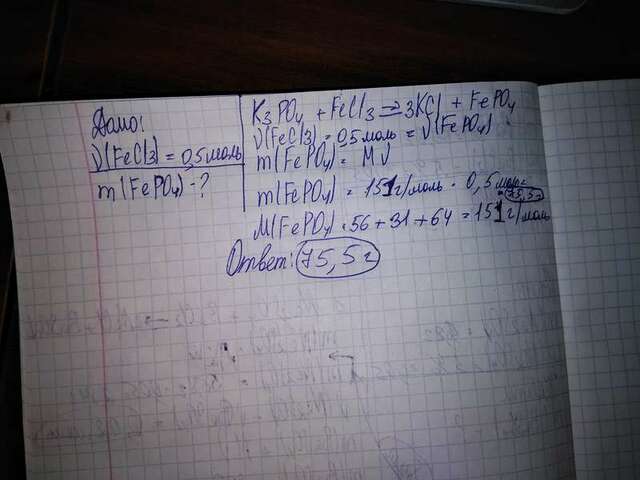 Дано:
ν(FeCl3) = 0,5 моль
m(FePO4) - ?
K3PO4 + FeCl3 = 3KCl + FePO4
ν(FeCl3) = 0,5 моль = ν(FePO4)
m(FePO4) = Mν
m(FePO4) = 151 г/моль · 0,5 моль = 75,5 г
M(FePO4) = 56 + 31 + 64 = 151 г/моль
Ответ: 75,5 г